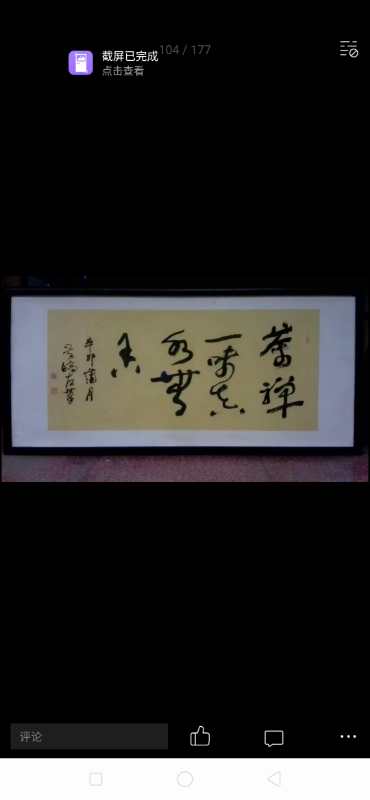 截屏已完成
点击查看
104 / 177
茶禅
一味真
水無
香
辛卯蒲月
评论